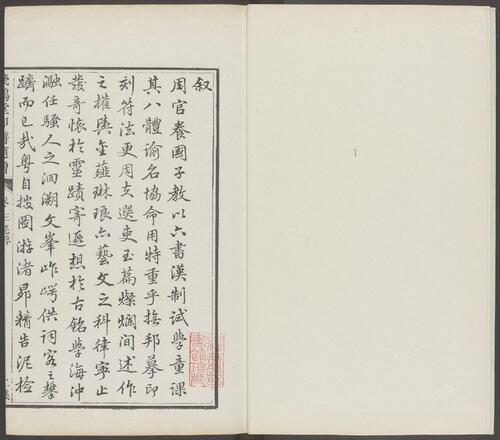 叙
周官養國子教以六書漢制試學童課
其八體諭名協命用特重乎撫邦摹印
刻符法更周玄選吏玉篇燦爛間述作
之權輿金薤琳琅亦藝文之科律寧止
發奇懷於靈蹟寄遐想於古銘學海沖
瀜任騷人之泗溯文峯岝崿供詞客之攀
躋而已哉粵自披圖游渚昴精告泥檢